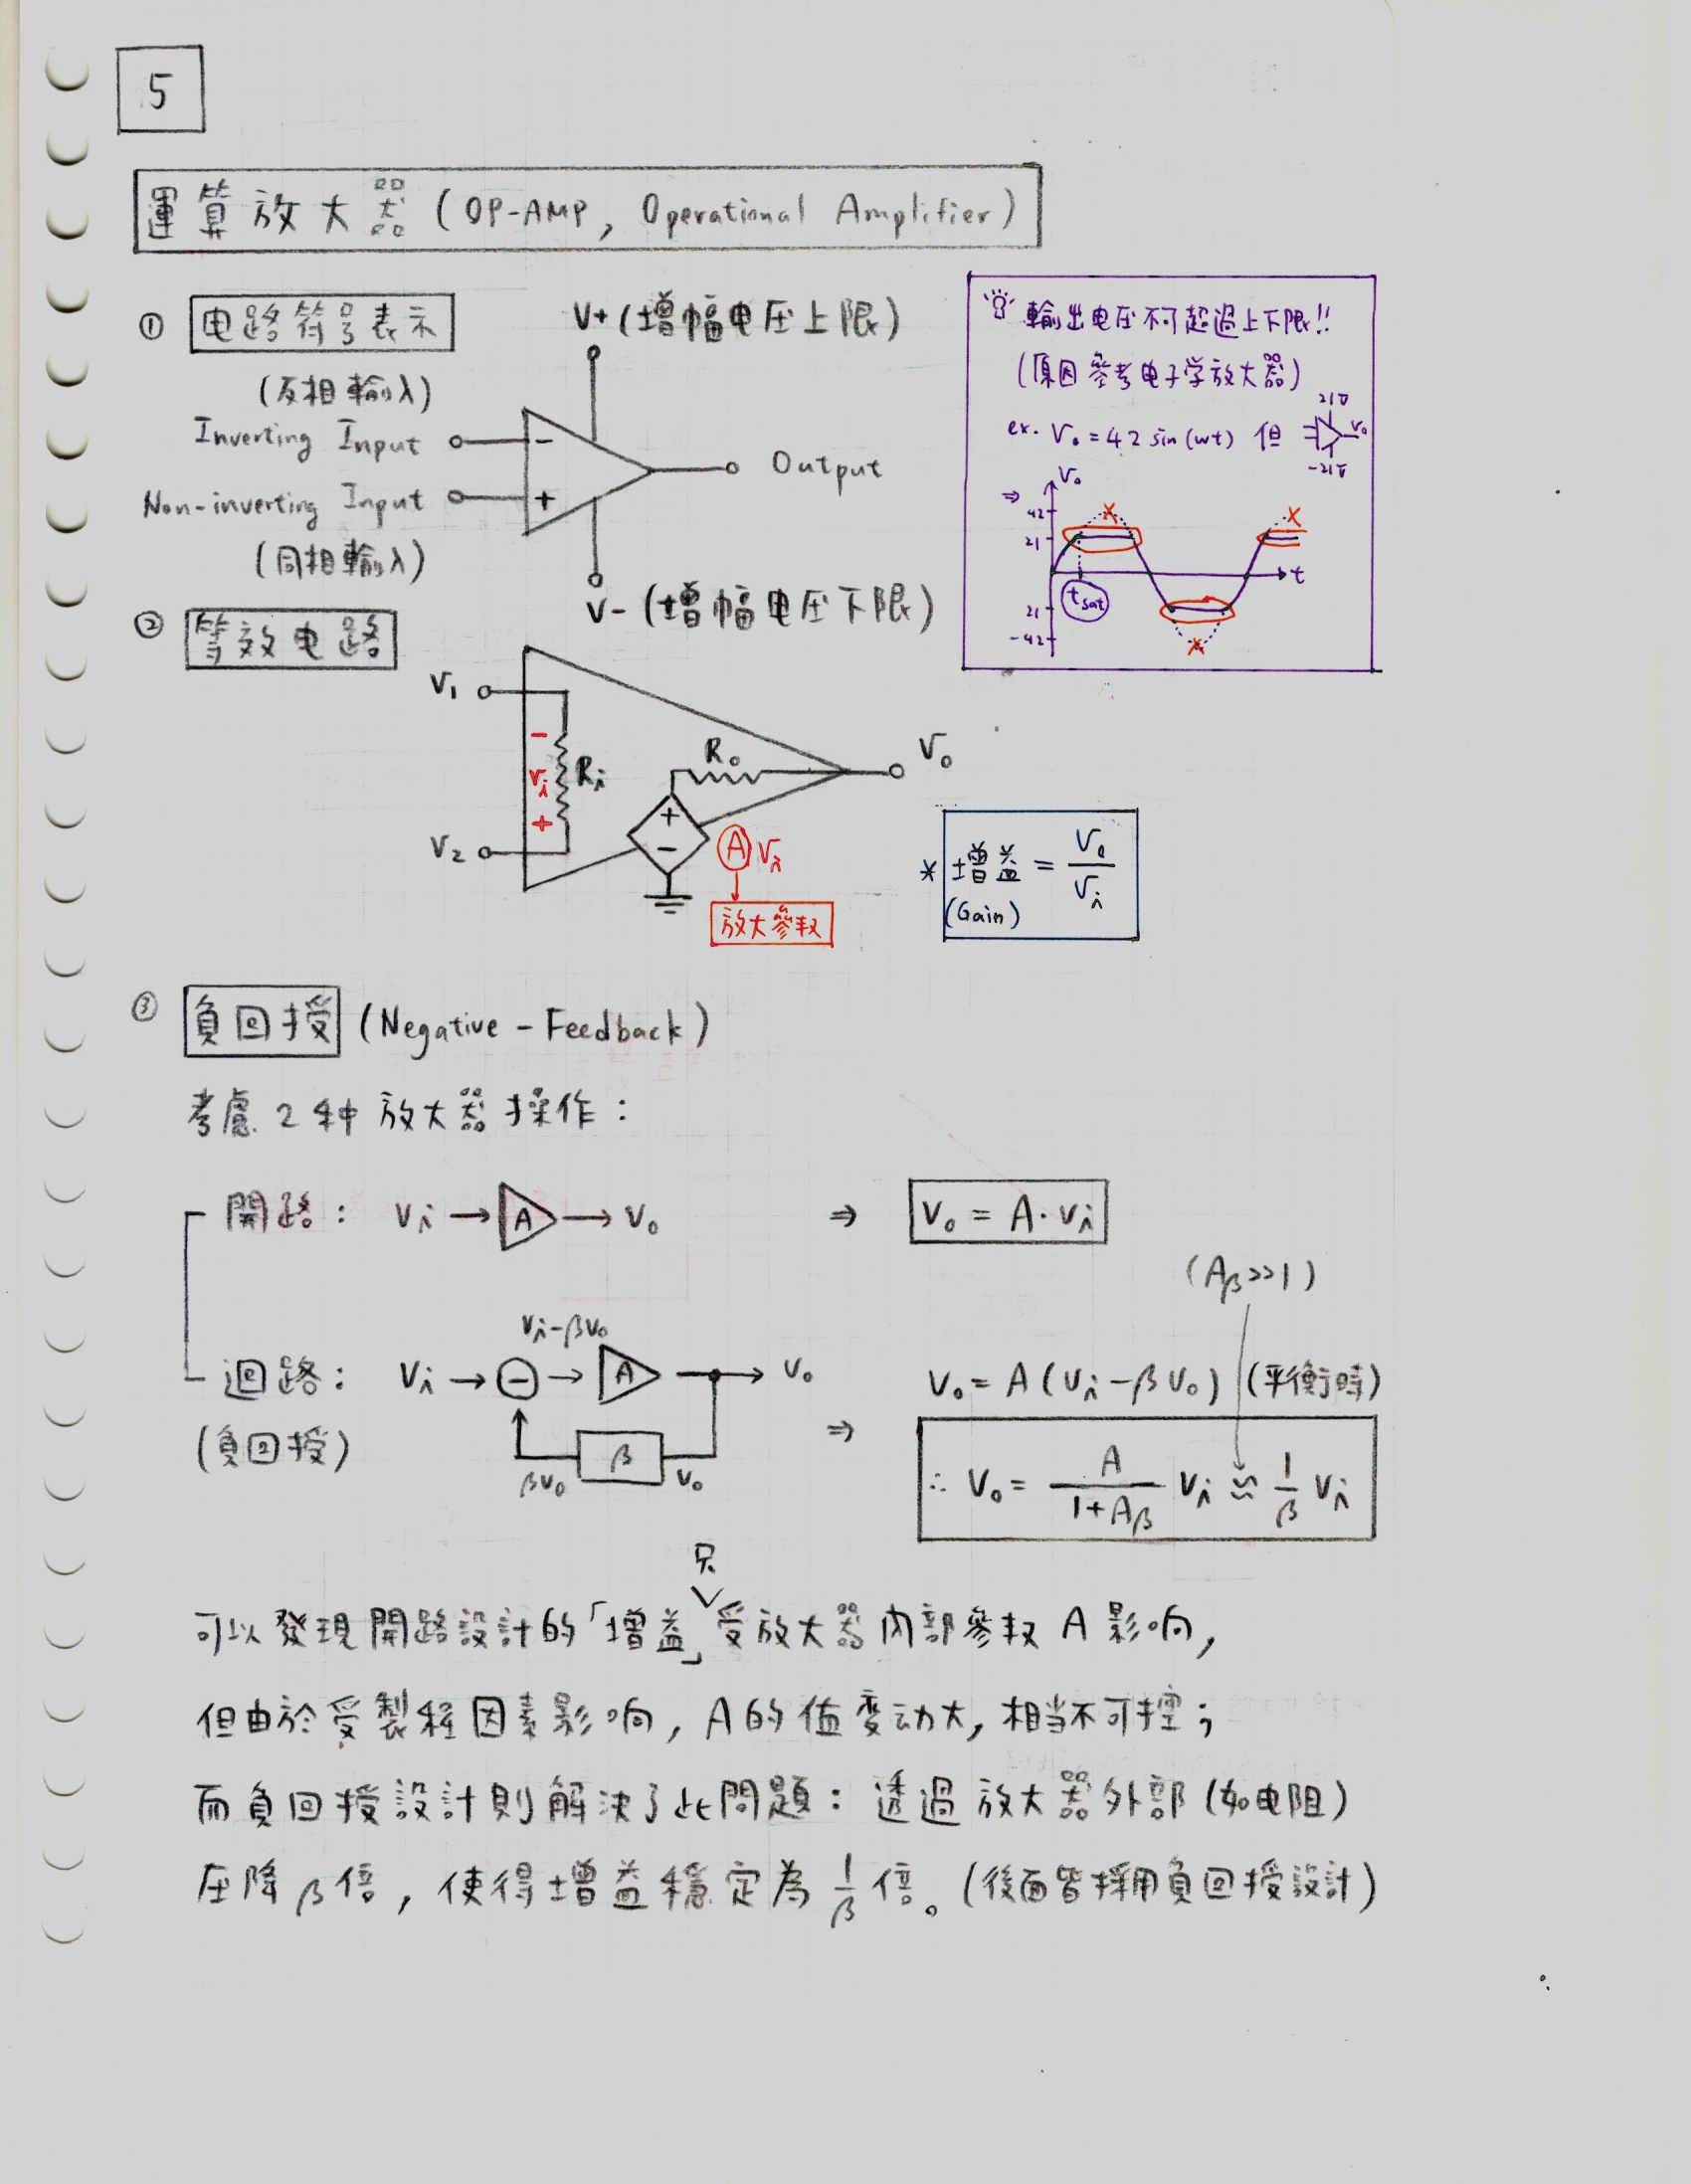 5
運算放大器 (OP-AMP, Operational Amplifier)
① 电路符号表示
V+ (增幅电压上限)
(反相輸入)
Inverting Input
−
Output
Non-inverting Input
+
(同相輸入)
V- (增幅电压下限)
輸出电压不可超過上下限!!
(原因參考电子学放大器)
ex. V₀ = 42 sin(wt) 但
21V
V₀
-21V
⇒
V₀
42
21
t
t sat
21
-42
② 等效电路
V₁
−
Vi
+
Ri
V₂
R₀
V₀
+
−
A Vi
放大參数
* 增益 = V₀/Vi
(Gain)
③ 負回授 (Negative-Feedback)
考慮 2 种放大器操作:
開路: Vi → A → V₀ ⇒ V₀ = A·Vi
(Aβ>>1)
Vi-βV₀
迴路: Vi → − → A → V₀
V₀ = A (Vi-βV₀) (平衡時)
(負回授)
βV₀
β
V₀
⇒
∴ V₀ = A/(1+Aβ) Vi ≈ 1/β Vi
只
可以發現開路設計的「增益」受放大器內部參数 A 影响,
但由於受製程因素影响, A的值变动大, 相当不可控;
而負回授設計則解決了此問題: 透過放大器外部 (如电阻)
压降 β倍, 使得增益穩定為 1/β 倍。(後面皆採用負回授設計)